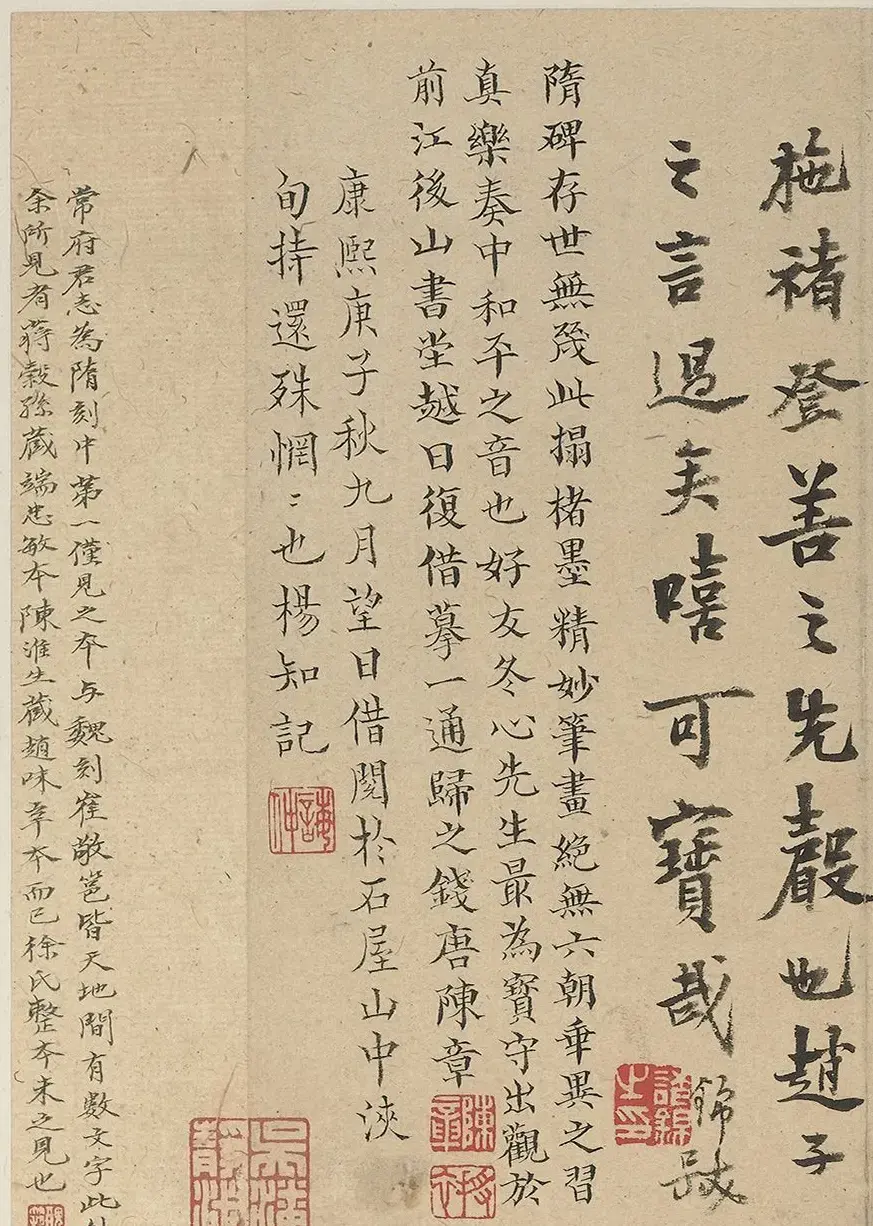 施褚登善之先聲也趙子
之言過矣嘻可寶哉
錦
隋碑存世無幾此搨楮墨精妙筆畫絕無六朝乖異之習
真樂奏中和平之音也好友冬心先生最為寶守出觀於
前江後山書堂越日復借摹一通歸之錢唐陳章
陳章
康熙庚子秋九月望日借閱於石屋山中浹
旬持還殊惘〻也楊知記
常府君志為隋刻中第一僅見之本与魏刻崔敬邕皆天地間有數文字此
余所見者蔣穀孫藏端忠敏本陳淮生藏趙味辛本而已徐氏整本未之見也